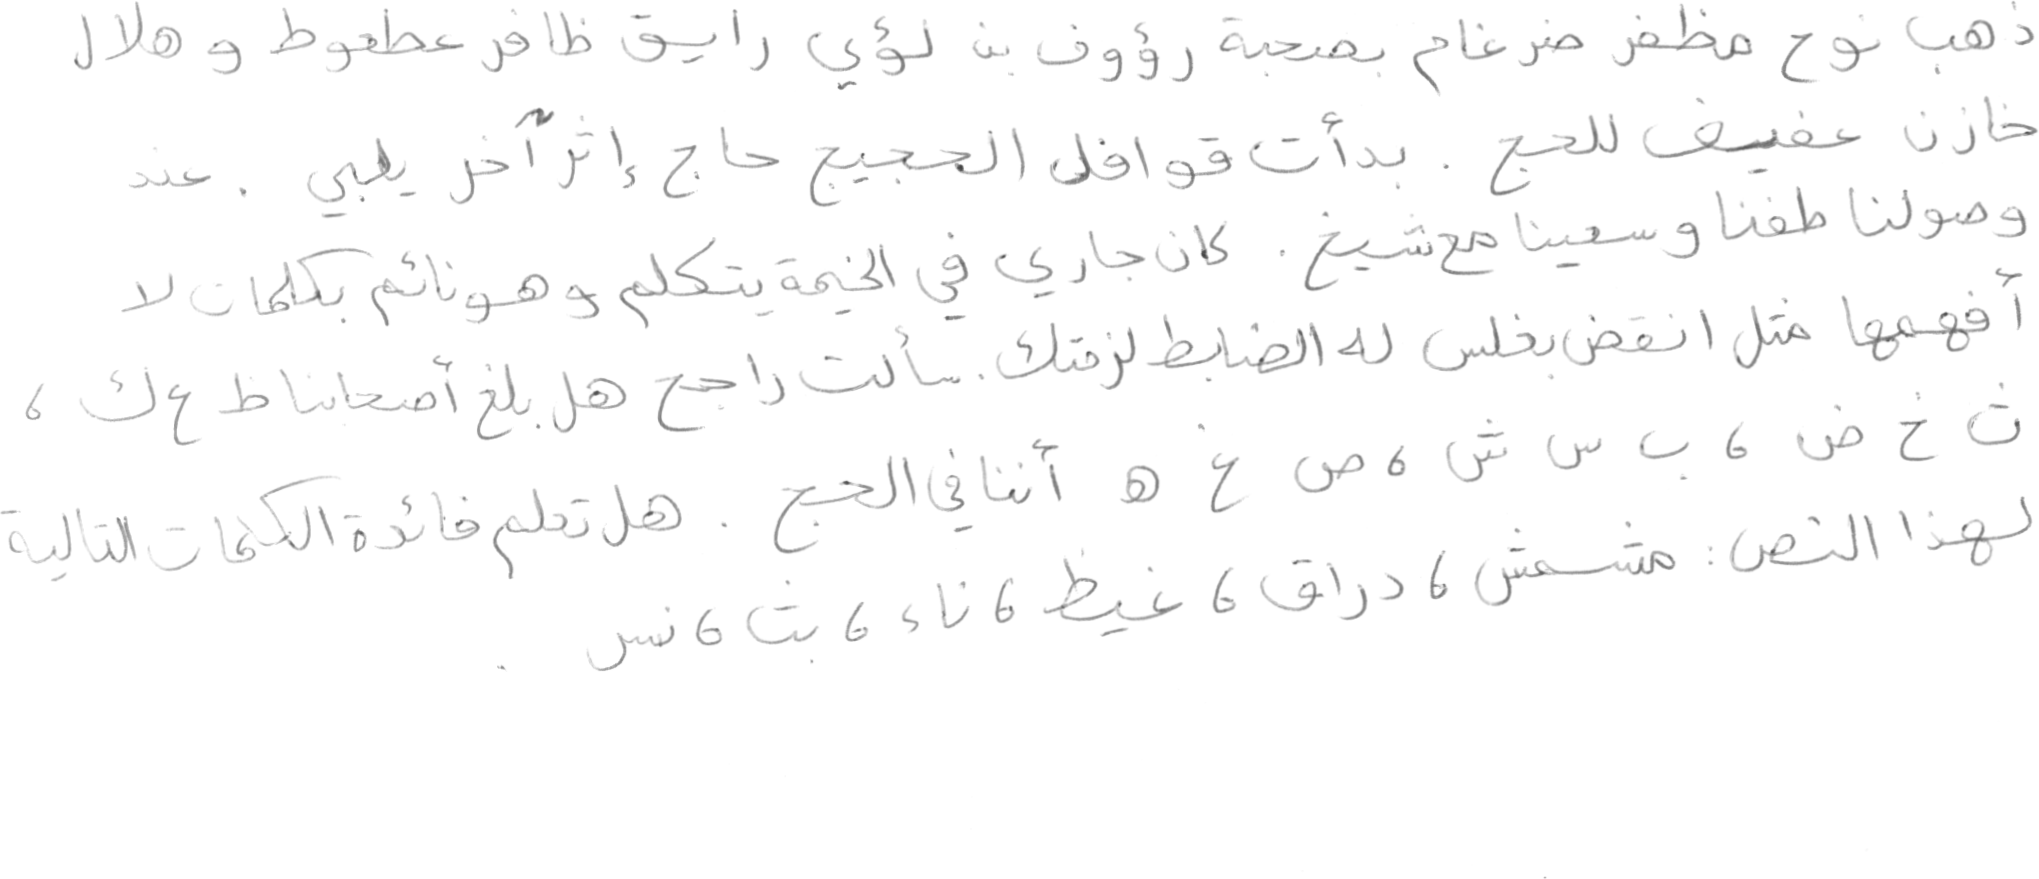 ذهب نوح مظفر ضرغام بصحبة رؤوف بن لؤي رايق ظافر عطعوط و هلال
خازن عفيف للحج . بدأت قوافل الحجيج حاج إثر آخر يلبي . عند
وصولنا طفنا وسعينا مع شيخ . كان جاري في الخيمة يتكلم وهو نائم بكلمات لا
أفهمها مثل انقض بغلس له الضابط لزمتك . سألت راجح هل بلغ أصحابنا ظ ع ك ،
ث خ ض ، ب س ش ، ص غ ه أننا في الحج . هل تعلم فائدة الكلمات التالية
لهذا النص : مشمش ، دراق ، غيظ ، ناء ، بث ، نسر .